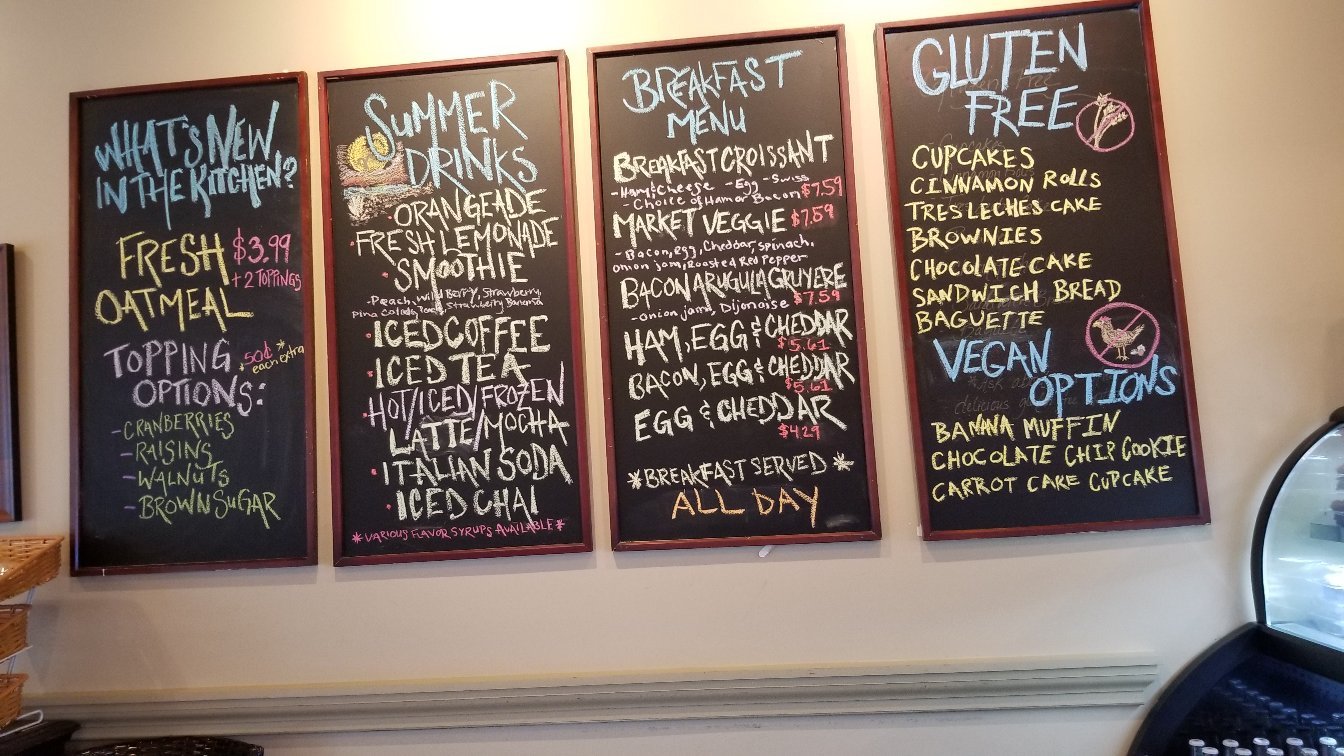 WHAT'S NEW
IN THE KITCHEN?
FRESH $3.99
+2 TOPPINGS
OATMEAL
TOPPING .50¢ *
each extra
OPTIONS:
-CRANBERRIES
-RAISINS
-WALNUTS
-BROWN SUGAR
SUMMER
DRINKS
·ORANGEADE
·FRESH LEMONADE
·SMOOTHIE
-Peach, Wild Berry, Strawberry,
Pina Colada, Strawberry Banana
·ICED COFFEE
·ICED TEA
·HOT/ICED/FROZEN
LATTE/MOCHA
·ITALIAN SODA
·ICED CHAI
*VARIOUS FLAVOR SYRUPS AVAILABLE*
BREAKFAST
MENU
BREAKFAST CROISSANT
-Ham & Cheese -Egg -Swiss $7.59
-Choice of Ham or Bacon
MARKET VEGGIE $7.59
-Bacon, Egg, Cheddar, Spinach,
onion jam, Roasted Red Pepper
BACON ARUGULA GRUYERE
-onion jam, Dijonaise $7.59
HAM, EGG & CHEDDAR
$5.61
BACON, EGG & CHEDDAR
$5.61
EGG & CHEDDAR
$4.29
*BREAKFAST SERVED*
ALL DAY
GLUTEN
FREE
CUPCAKES
CINNAMON ROLLS
TRES LECHES CAKE
BROWNIES
CHOCOLATE CAKE
SANDWICH BREAD
BAGUETTE
VEGAN
OPTIONS
BANANA MUFFIN
CHOCOLATE CHIP COOKIE
CARROT CAKE CUPCAKE